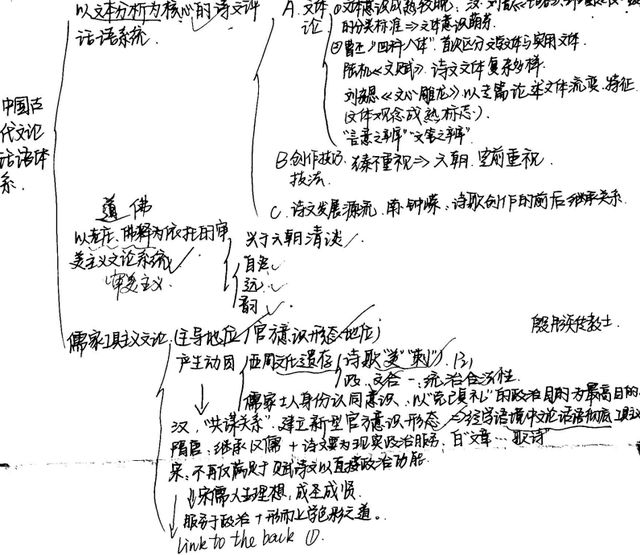 以文本分析为核心的诗文评
话语系统.
A. 文体论
①文体意识成熟较晚: 汉.
的分类标准⇒文体意识萌芽.
②曹丕"四科八体". 首次区分文学文体与实用文体.
陆机《文赋》. 诗文文体复杂多样.
刘勰《文心雕龙》. 以专篇论述文体流变. 特征
(文体观念成熟标志.)
B. 创作技巧.
技法.
不重视⇒六朝. 空前重视.
C. 诗文发展源流. 南·钟嵘. 诗歌创作的前后继承关系.
中国古
代文论
话语体
系.
道 佛
以老庄、佛释为依托的审
美主义文论系统
审美主义.
兴于六朝清谈
自然
远
韵
儒家工具主义文论
(主导地位/官方意识形态地位)
产生动因
西周文化遗存 诗歌"美""刺".
政、文合一. 统治合法性.
儒家士人身份认同意识. 以"克己复礼"的政治目的为最高目的.
汉. "共谋关系". 建立新型官方意识形态⇒经学语境中文论话语彻底工具
隋唐: 继承汉儒+诗文要为现实政治服务. 白"文章…歌诗"
宋: 不再仅满足于赋诗文以直接政治功能
↓宋儒人生理想, 成圣成贤.
服务于政治+形而上色彩之道.
Link to the back ①.